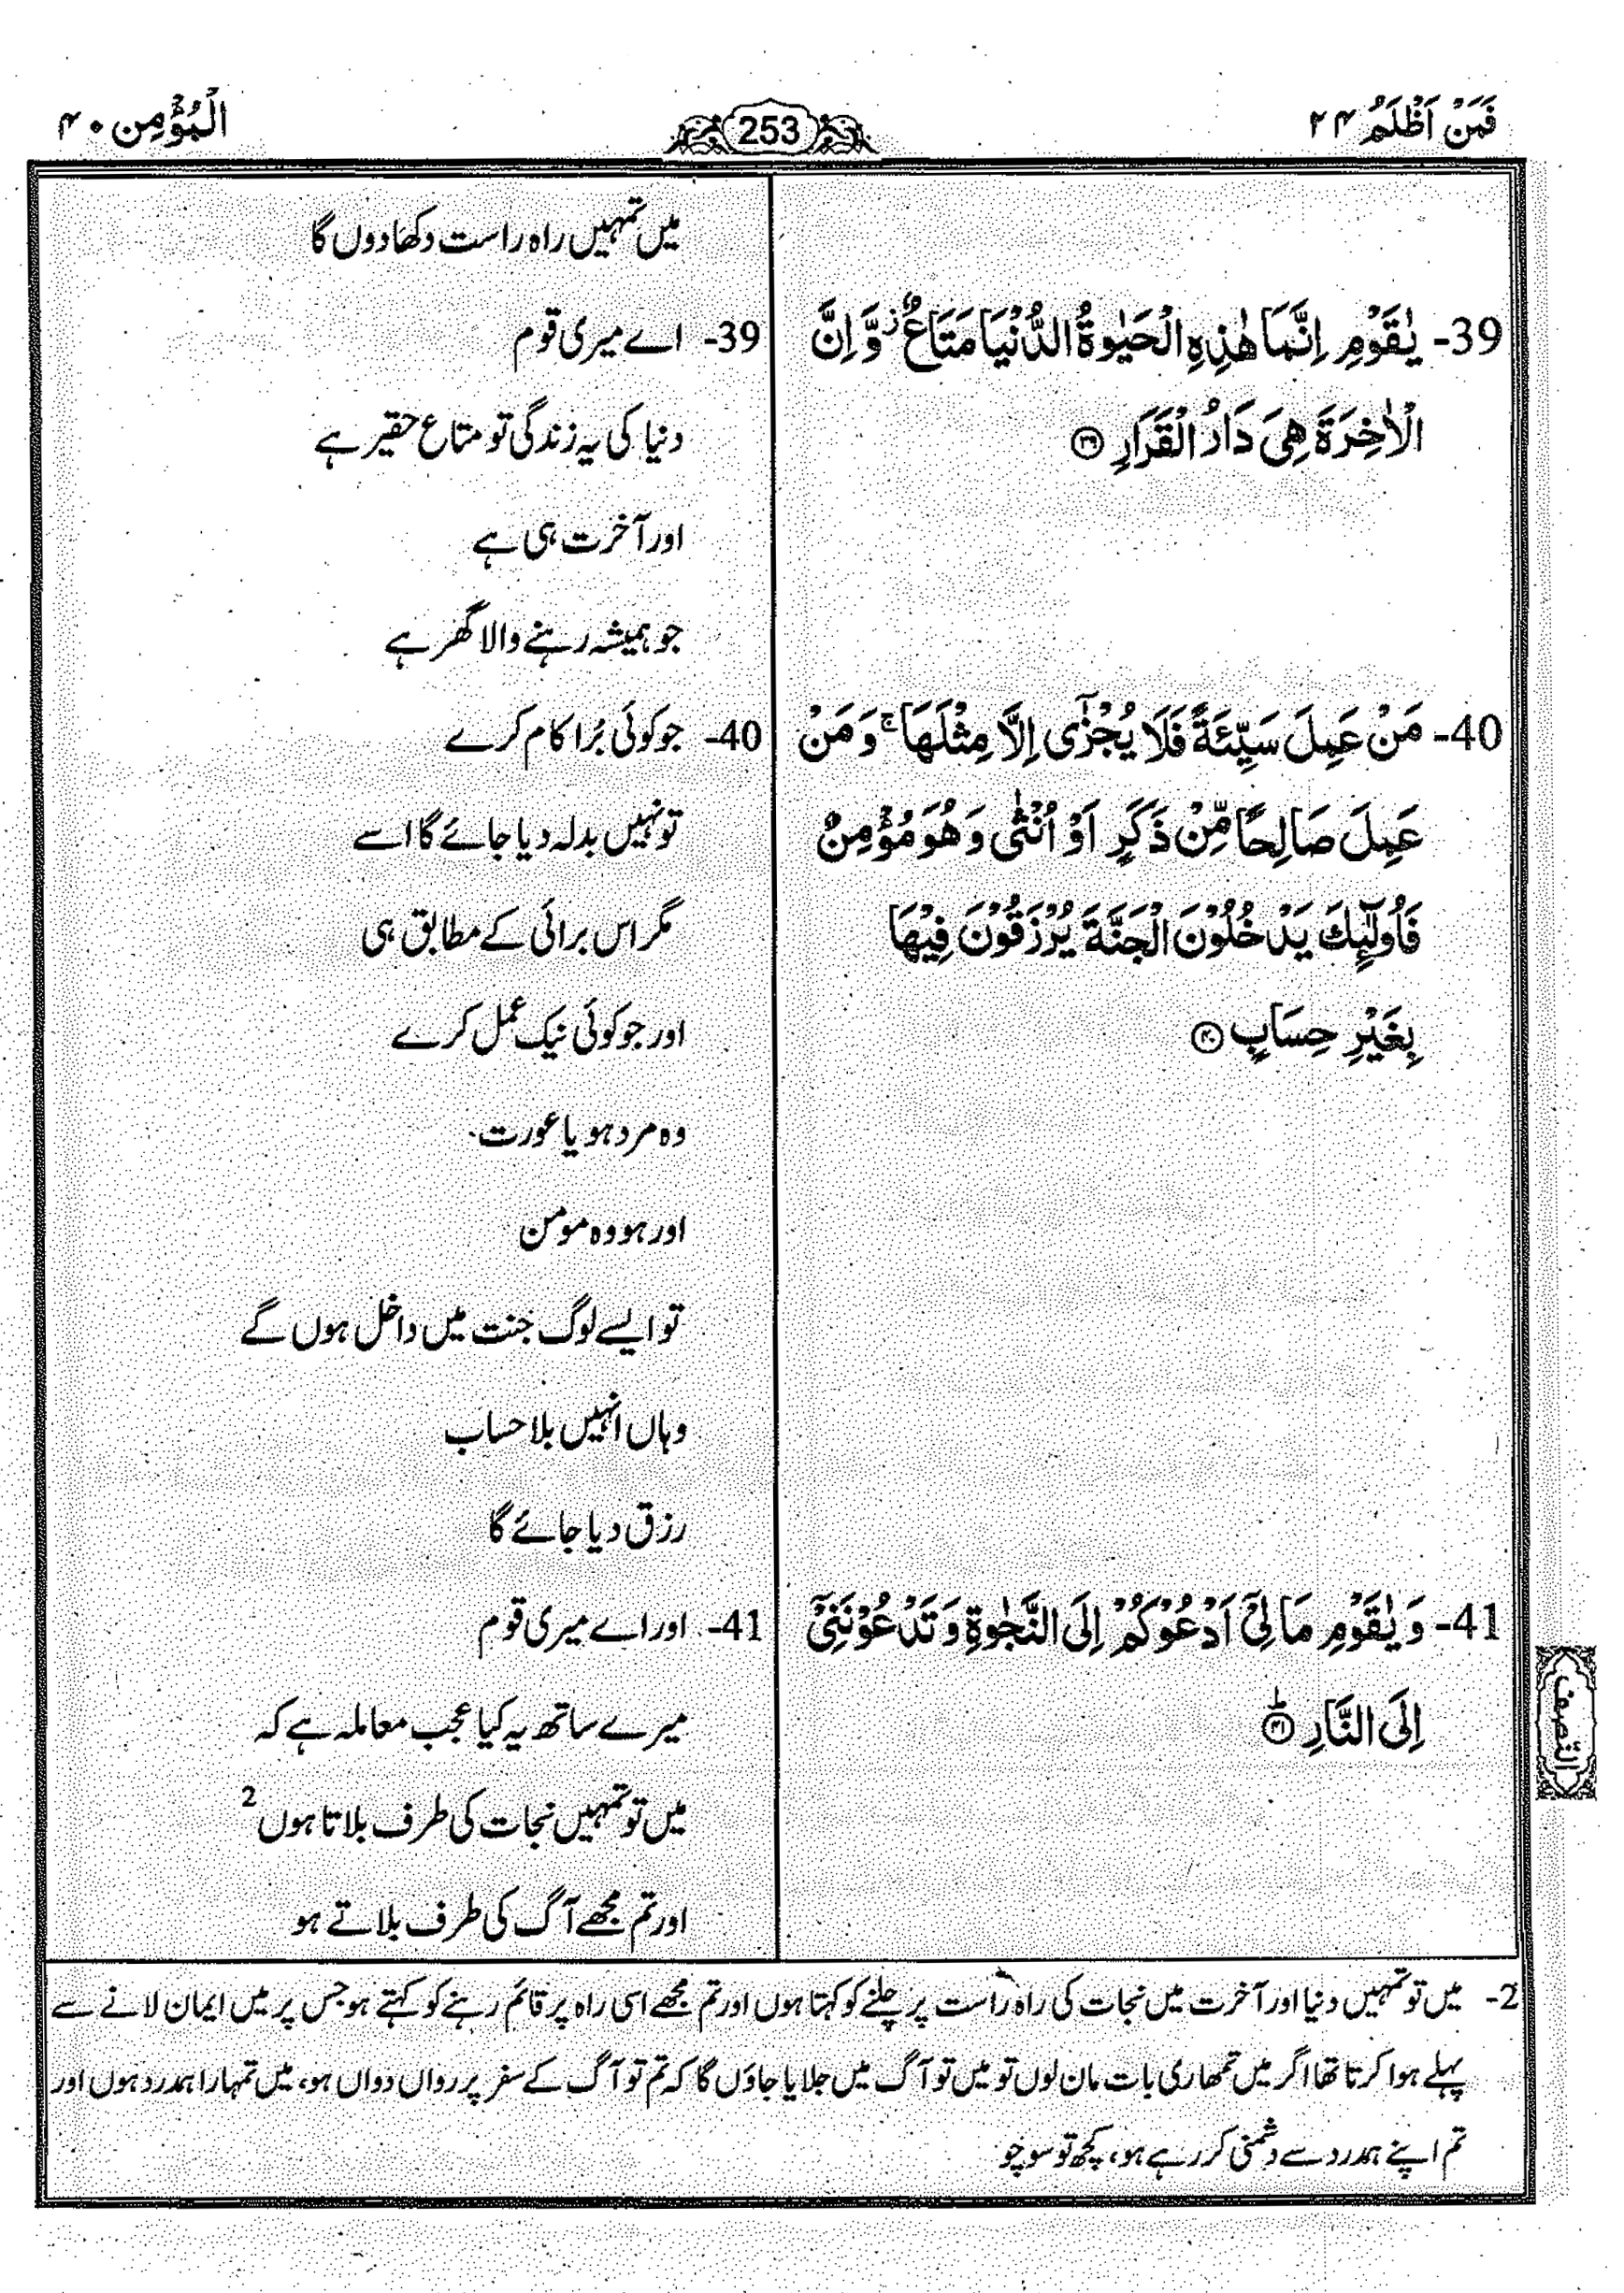 فَمَنْ اَظْلَمُ ۲۴
253
الْمُؤْمِن ۴۰
میں تمہیں راہ راست دکھا دوں گا
39- يٰقَوْمِ اِنَّمَا هٰذِهِ الْحَيٰوةُ الدُّنْيَا مَتَاعٌ ۫ وَّ اِنَّ
الْاٰخِرَةَ هِيَ دَارُ الْقَرَارِ ۳۹
39- اے میری قوم
دنیا کی یہ زندگی تو متاع حقیر ہے
اور آخرت ہی ہے
جو ہمیشہ رہنے والا گھر ہے
40- مَنْ عَمِلَ سَيِّئَةً فَلَا يُجْزٰٓى اِلَّا مِثْلَهَا ۚ وَ مَنْ
عَمِلَ صَالِحًا مِّنْ ذَكَرٍ اَوْ اُنْثٰى وَ هُوَ مُؤْمِنٌ
فَاُولٰٓئِكَ يَدْخُلُوْنَ الْجَنَّةَ يُرْزَقُوْنَ فِيْهَا
بِغَيْرِ حِسَابٍ ۴۰
40- جو کوئی بُرا کام کرے
تو نہیں بدلہ دیا جائے گا اسے
مگر اس برائی کے مطابق ہی
اور جو کوئی نیک عمل کرے
وہ مرد ہو یا عورت
اور ہو وہ مومن
تو ایسے لوگ جنت میں داخل ہوں گے
وہاں انہیں بلا حساب
رزق دیا جائے گا
41- وَ يٰقَوْمِ مَا لِيْٓ اَدْعُوْكُمْ اِلَى النَّجٰوةِ وَ تَدْعُوْنَنِيْٓ
اِلَى النَّارِ ۴۱ؕ
النصف
41- اور اے میری قوم
میرے ساتھ یہ کیا عجب معاملہ ہے کہ
میں تو تمہیں نجات کی طرف بلاتا ہوں 2
اور تم مجھے آگ کی طرف بلاتے ہو
2- میں تو تمہیں دنیا اور آخرت میں نجات کی راہ راست پر چلنے کو کہتا ہوں اور تم مجھے اسی راہ پر قائم رہنے کو کہتے ہو جس پر میں ایمان لانے سے
پہلے ہوا کرتا تھا اگر میں تمھاری بات مان لوں تو میں تو آگ میں جلایا جاؤں گا کہ تم تو آگ کے سفر پر رواں دواں ہو، میں تمہارا ہمدرد ہوں اور
تم اپنے ہمدرد سے دشمنی کر رہے ہو، کچھ تو سوچو